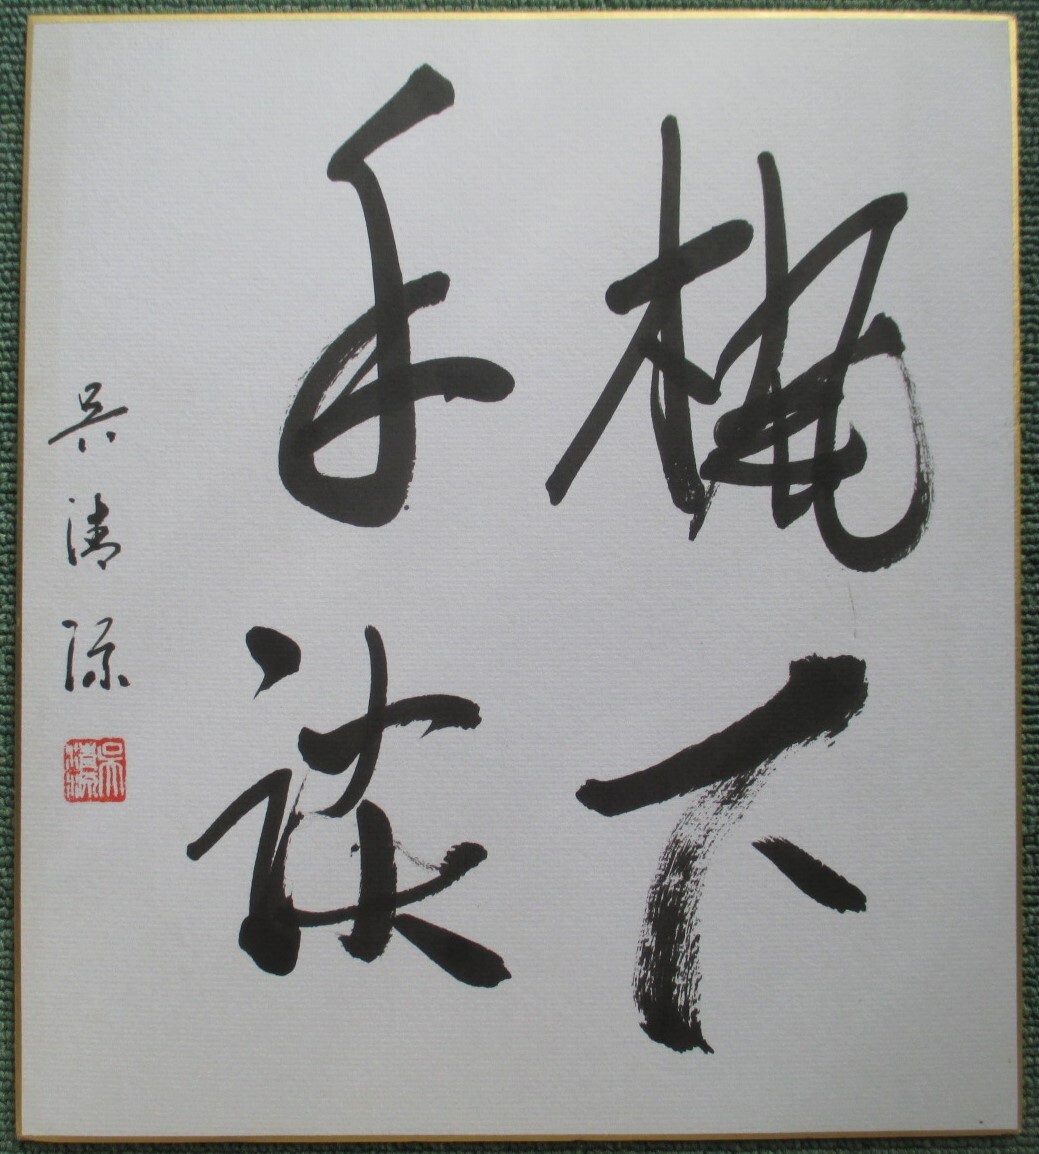 下
手談
呉清源
呉清源